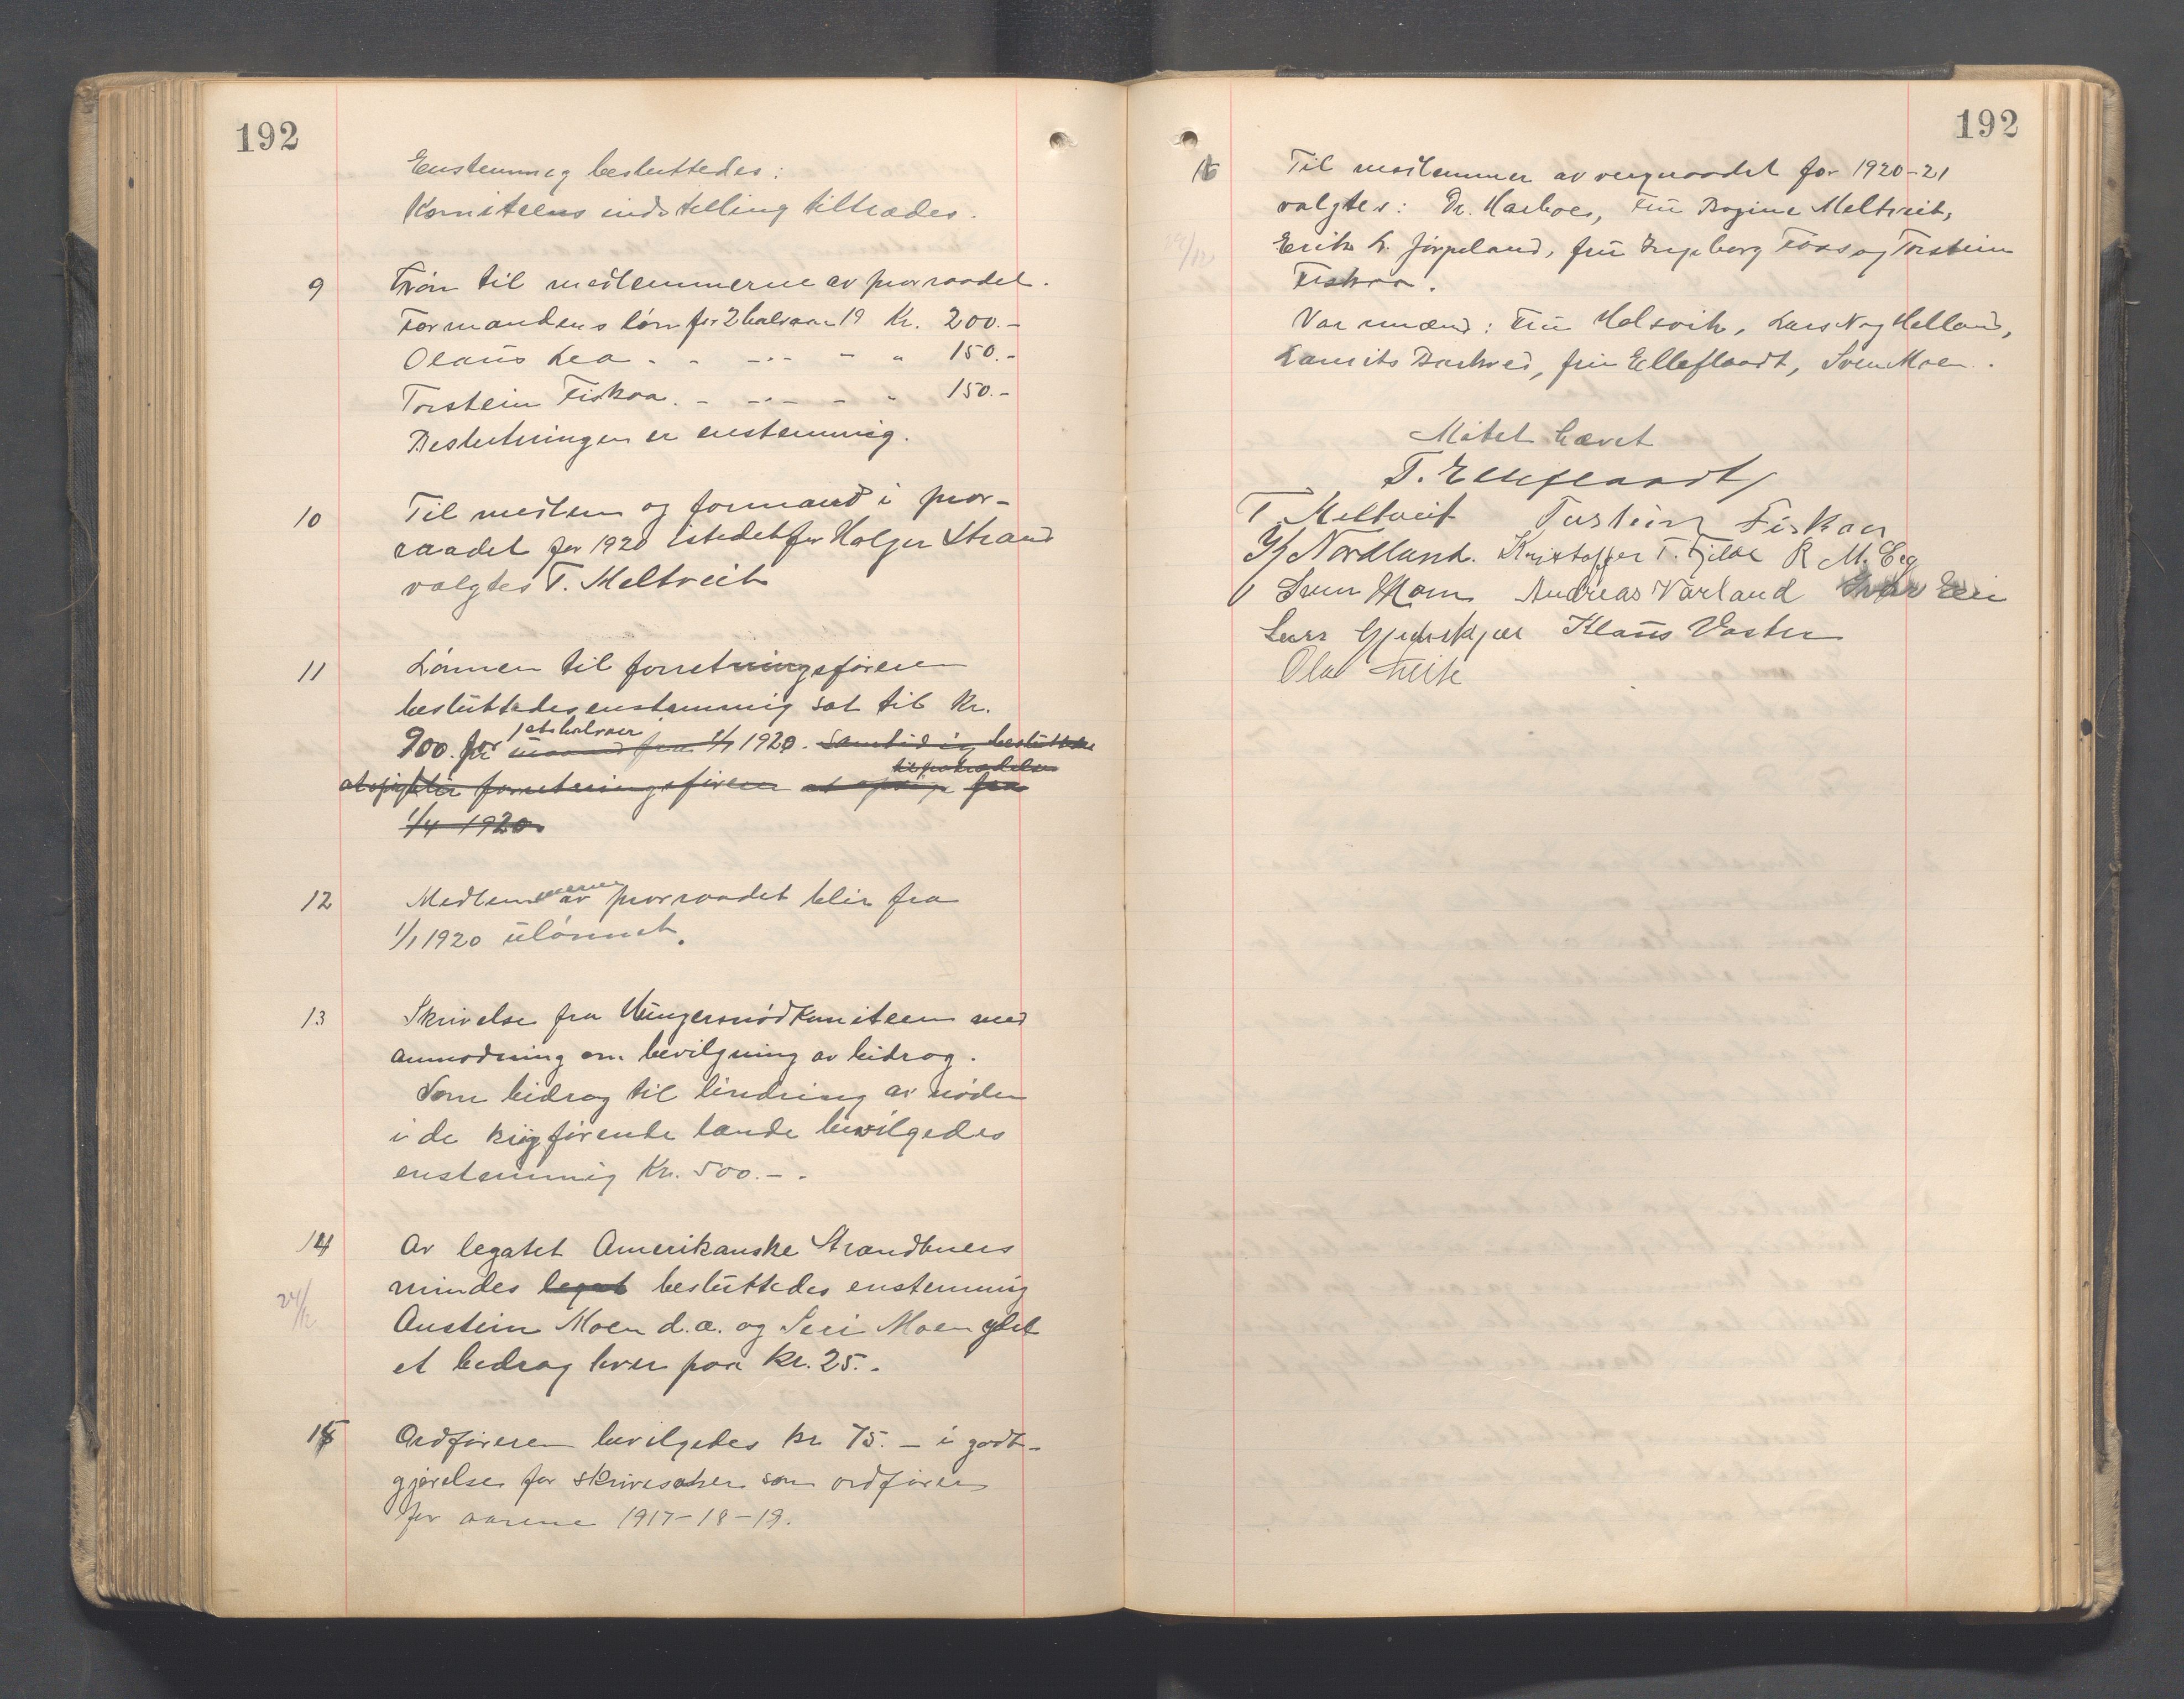 192
Enstemmig besluttedes:
Komiteens indstilling tiltrædes.
9 Løn til medlemmerne av provraadet.
Formandens løn for 2 halvaar 19 Kr. 200.-
Olaus Lea - - -"- - " 150.-
Torstein Fiskaa. - -"- - " 150.-
Beslutningen er enstemmig.
10 Til medlem og formand i prov-
raadet for 1920 istedetfor Holger Strand
valgtes T. Meltveit
11 Lønnen til forretningsføreren
besluttedes enstemmig sat til Kr.
900. for 1ste halvaar 1920. samtidig besluttedes
forretningsføreren at opsige fra
1/4 1920.
12 Medlemmerne av provraadet blir fra
1/1 1920 ulønnet.
13 Skrivelse fra Hungersnødkomiteen med
anmodning om bevilgning av bidrag.
Som bidrag til lindring av nøden
i de krigførende lande bevilgedes
enstemmig Kr. 500.-.
14 Av legatet Amerikanske Strandbuers
mindes legat besluttedes enstemmig
24/12
Austein Moen d.æ. og Siri Moen ydet
et bidrag hver paa kr. 25.-
15 Ordføreren bevilgedes kr 75.- i godt-
gjørelse for skrivesaker som ordfører
for aarene 1917-18-19.
192
16 Til medlemmer av vergeraadet for 1920-21
valgtes: Dr. Harboe, Fru Bogine Meltveit,
Erik L. Jørpeland, fru Ingeborg Foss og Torstein
Fiskaa.
Varamænd: Fru Holsvik, Lars N. Helland,
Laurits Barkved, fru Elleflaadt, Sven Moen.
Møtet hævet
T. Elleflaadt
T. Meltveit Torstein Fiskaa
Nordland. Kristoffer T. Fjelde R M. Eeg
Sven Moen Andreas Varland
Lars Gjerdskjær Klaus Vaster
Ola